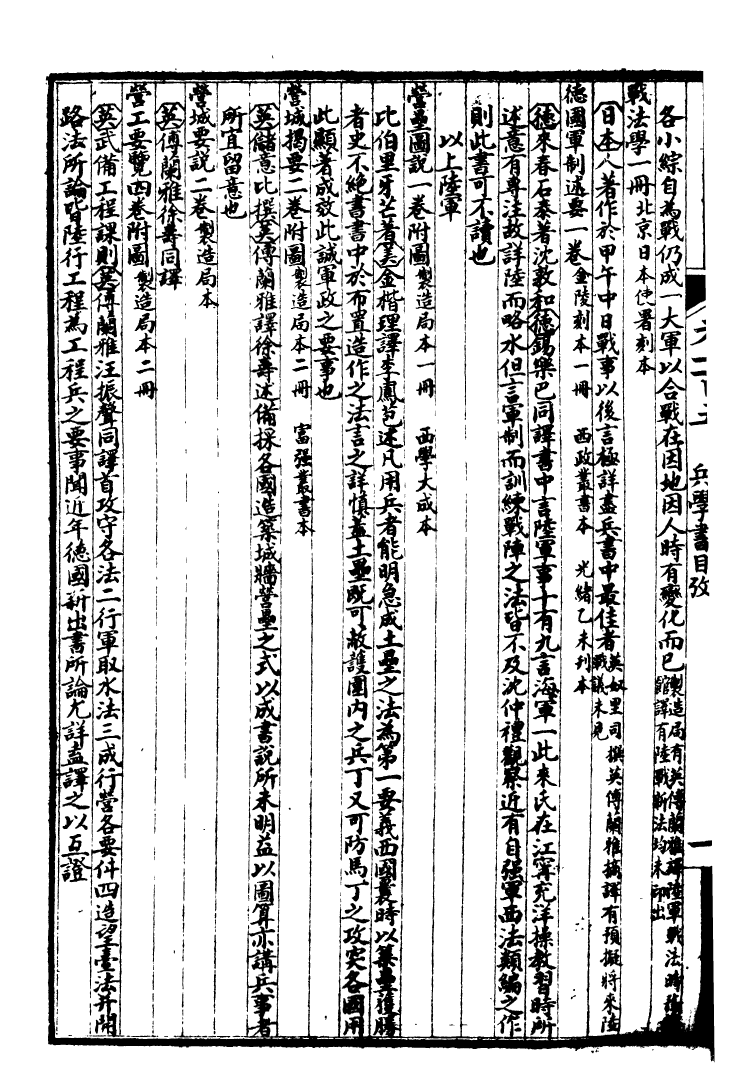 各小綜自為戰仍成一大軍以合戰在因地因人時有變化而已製造局有英傅蘭雅譯陸軍戰法
館譯有陸戰新法均未印出
戰法學一冊北京日本使署刻本
日本人著作於甲午中日戰事以後言極詳盡兵書中最佳者英奴里司撰英傅蘭雅摘譯有預擬將來陸
戰議未見
德國軍制述要一卷金陵刻本一冊 西政叢書本 光緒乙未刊本
德來春石泰著沈敦和德錫樂巴同譯書中言陸軍事十有九言海軍一此來氏在江寧充洋操教習時所
述意有專注故詳陸而略水但言軍制而訓練戰陣之法皆不及沈仲禮觀察近有自强軍西法類編之作
則此書可不讀也
以上陸軍
營壘圖說一卷附圖製造局本一冊 西學大成本
比伯里牙芒著美金楷理譯李鳳苞述凡用兵者能明急成土壘之法為第一要義西國曩時以築壘獲勝
者史不絕書書中於布置造作之法言之詳慎蓋土壘既可敝護圍内之兵丁又可防馬丁之攻突各國用
此顯著成效此誠軍政之要事也
營城揭要二卷附圖製造局本二冊 富强叢書本
英儲意比撰英傅蘭雅譯徐壽述備採各國造築城牆營壘之式以成書說所未明益以圖算亦講兵事者
所宜留意也
營城要說二卷製造局本
英傅蘭雅徐壽同譯
營工要覽四卷附圖製造局本二冊
英武備工程課則英傅蘭雅汪振聲同譯首攻守各法二行軍取水法三成行營各要件四造望臺法并開
路法所論皆陸行工程為工程兵之要事聞近年德國新出書所論尤詳盍譯之以互證
兵學書目攷
一